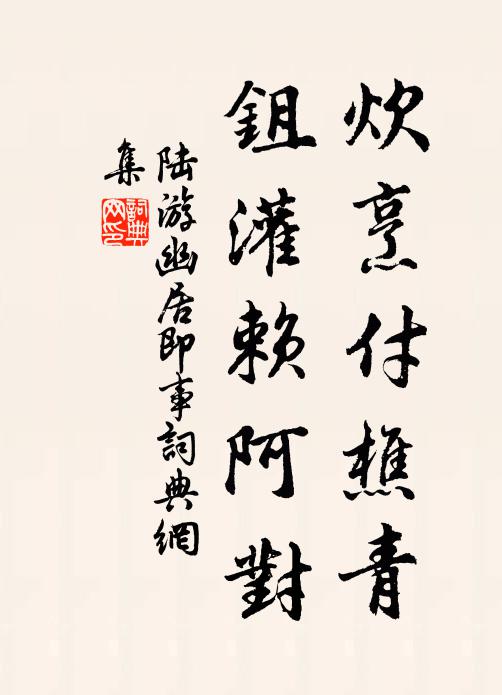 炊烹付樵青
鉏灌賴阿對
陆游幽居即事詞典網
集
詞典網印